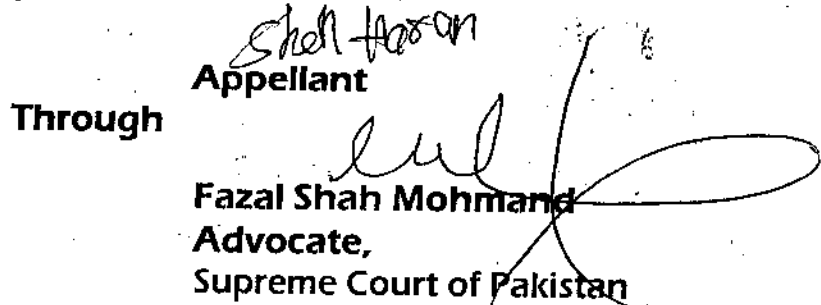 Appellant
Through
Fazal Shah Mohmand
Advocate,
Supreme Court of Pakistan